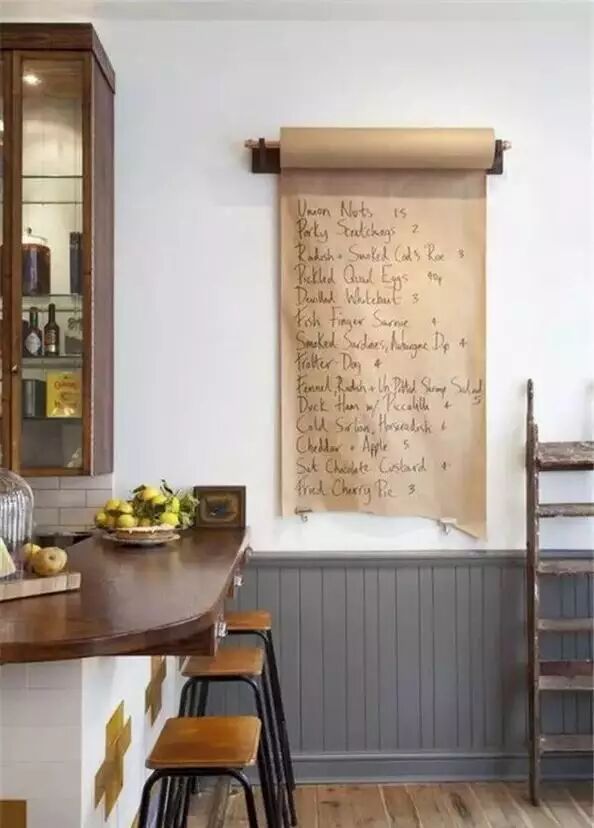 Union Nuts 1.5
Porky Scratchings 2
Radish + Smoked Cod's Roe 3
Pickled Quail Eggs 90p
Devilled Whitebait 3
Fish Finger Sarnie 4
Smoked Sardines, Aubergine Dip 4
Trotter Dog 4
Fennel, Radish + Un Potted Shrimp Salad 5
Duck Ham w/ Piccalilli 4
Cold Sirloin, Horseradish 6
Cheddar + Apple 5
Salt Chocolate Custard 4
Fried Cherry Pie 3